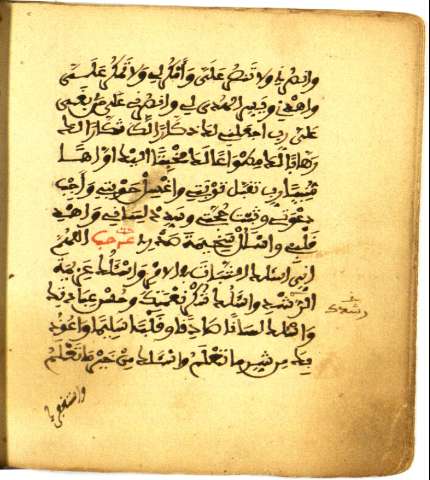 وانصرني ولا تنصر علي وامكر لي ولا تمكر علي
واهدني ويسر الهدى لي وانصرني على من بغى
علي رب اجعلني لك ذكارا لك شكارا لك
رهابا لك مطواعا لك مخبتا اليك اواها
منيبا رب تقبل توبتي واغسل حوبتي واجب
دعوتي وثبت حجتي وسدد لساني واهد
قلبي واسلل سخيمة صدري حب اللهم
اني اسئلك الثبات في الامر واسئلك عزيمة
الرشد واسئلك شكر نعمتك وحسن عبادتك
واسئلك لسانا صادقا وقلبا سليما واعوذ
بك من شر ما تعلم واسئلك من خير ما تعلم